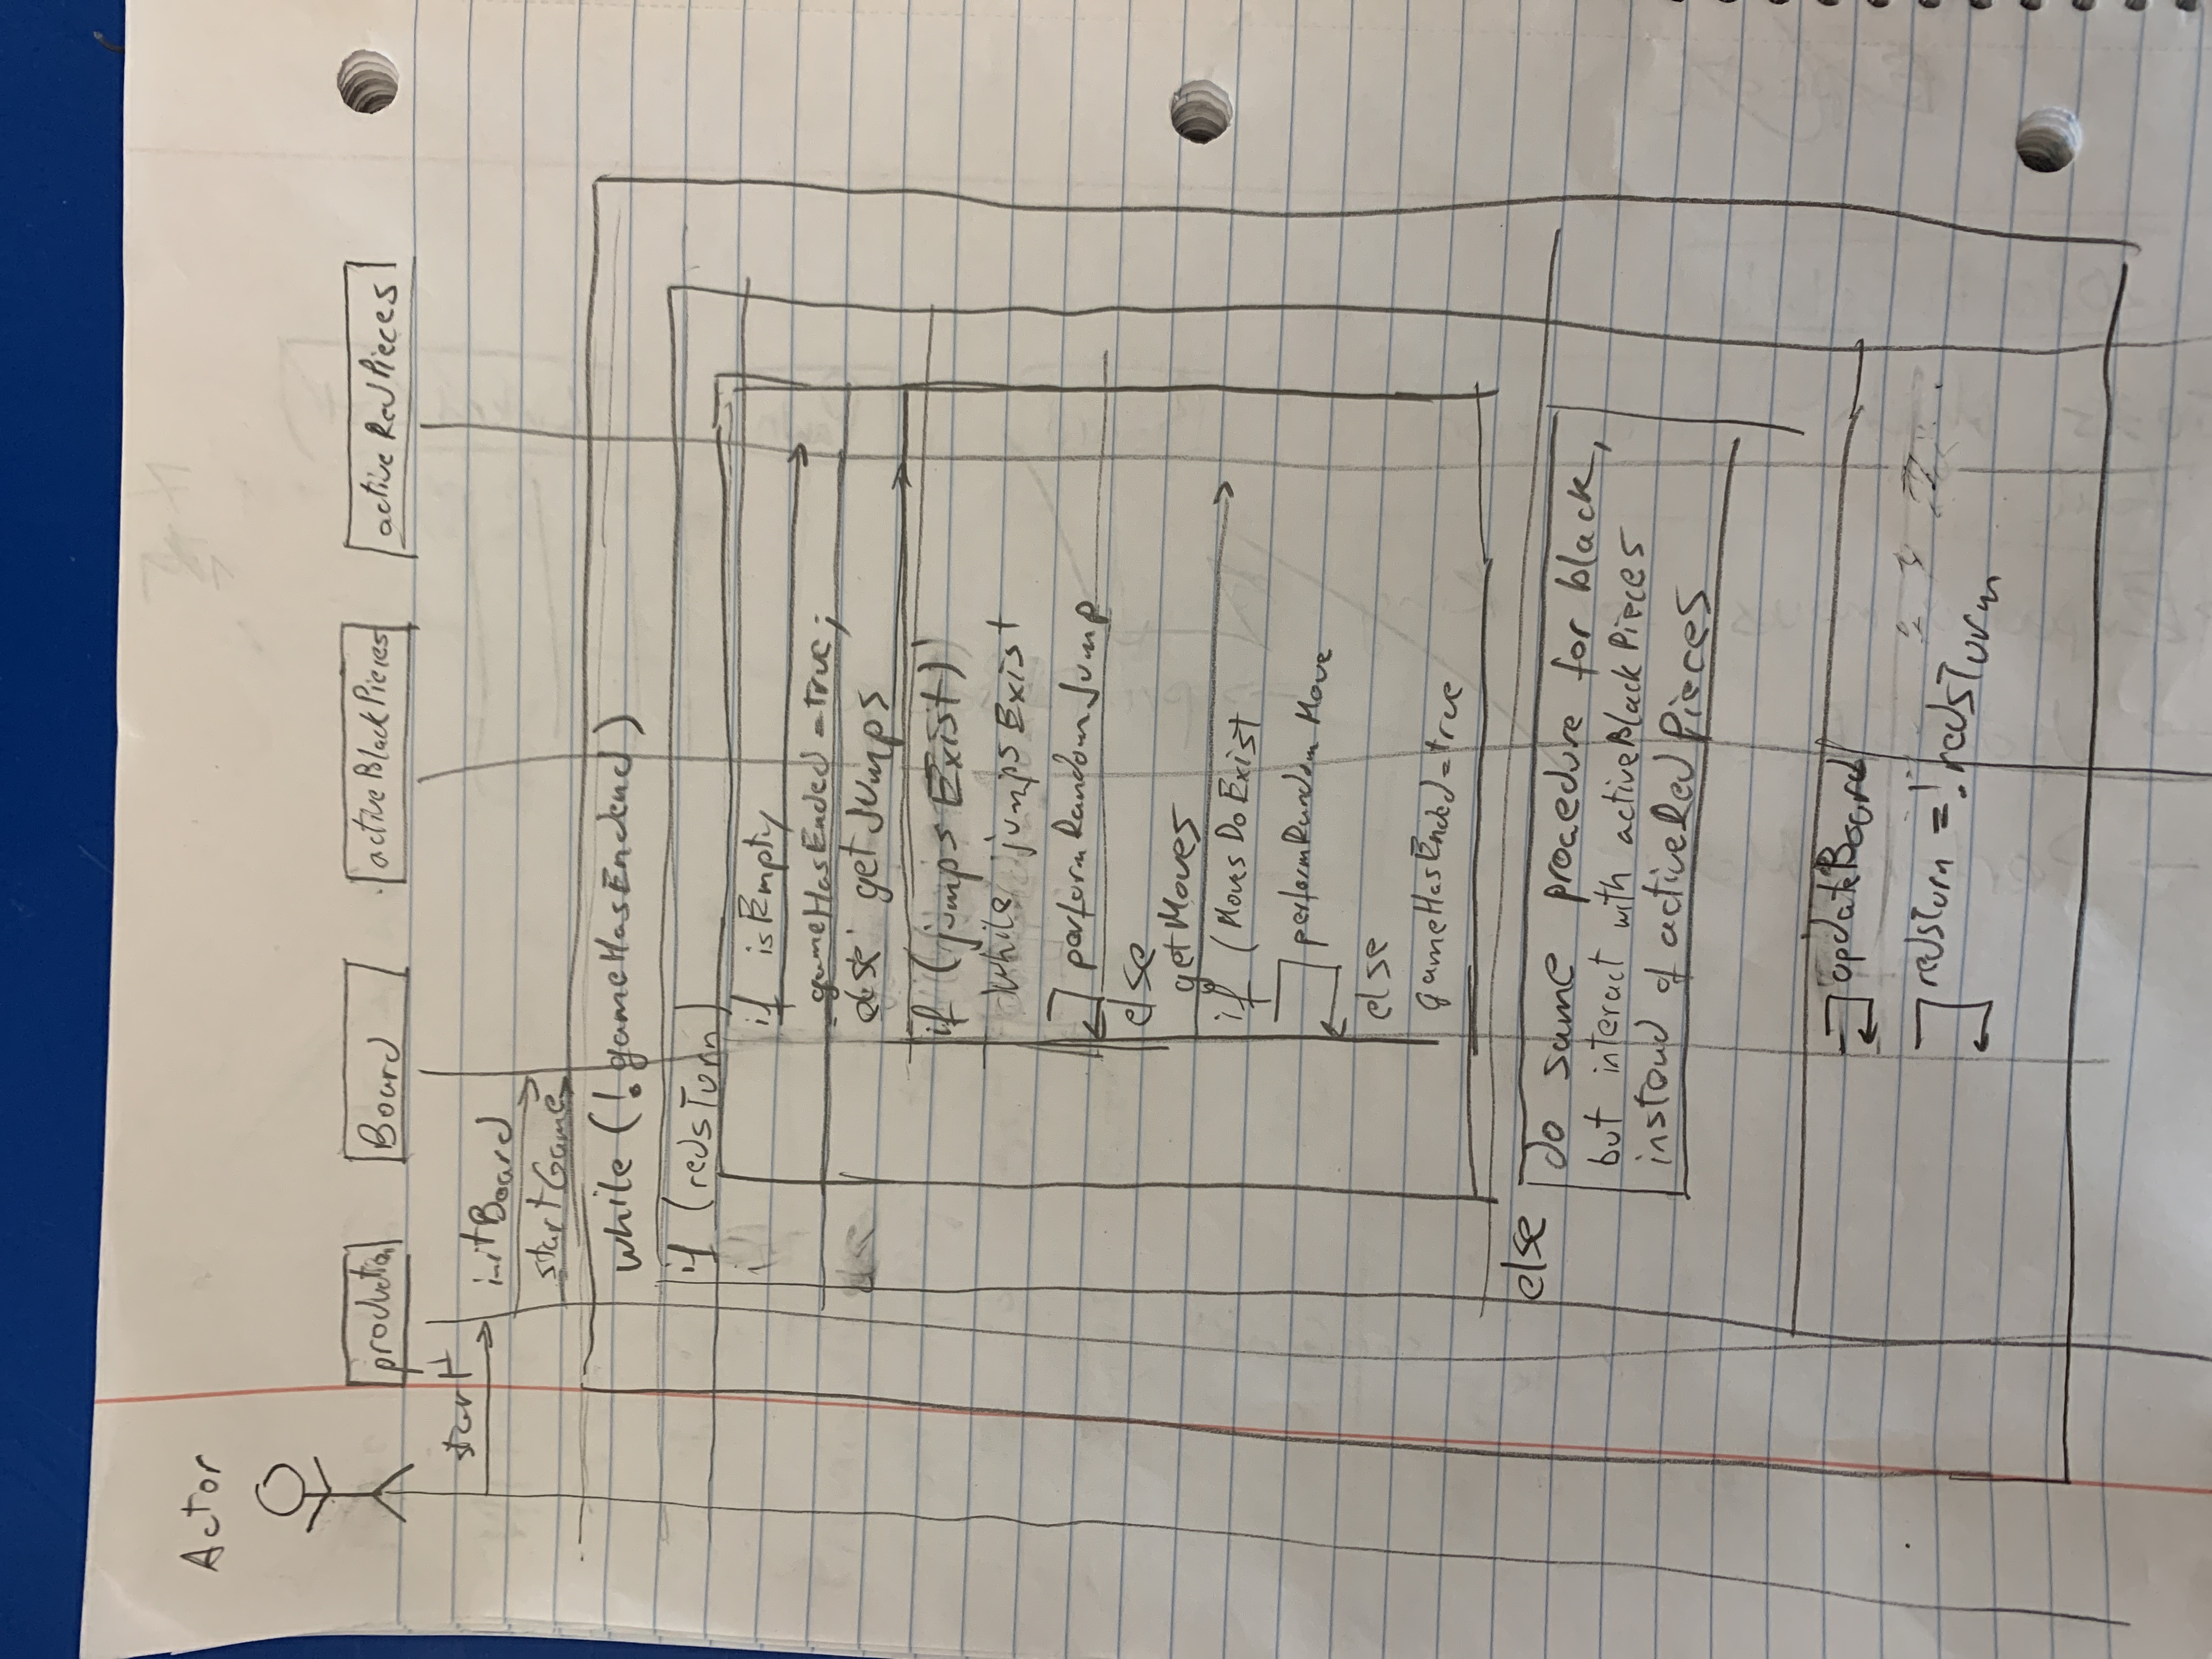 Actor
production
Board
activeBlackPieces
activeRedPieces
start
initBoard
startGame
while (!gameHasEndend)
if (redsTurn)
if isEmpty
gameHasEnded = true;
else getJumps
if (jumpsExist)
while jumpsExist
performRandomJump
else
getMoves
if (MovesDoExist
performRandomMove
else
gameHasEnded = true
else
do same procedure for black,
but interact with activeBlackPieces
instead of activeRedPieces
updateBoard
redsTurn = !redsTurn